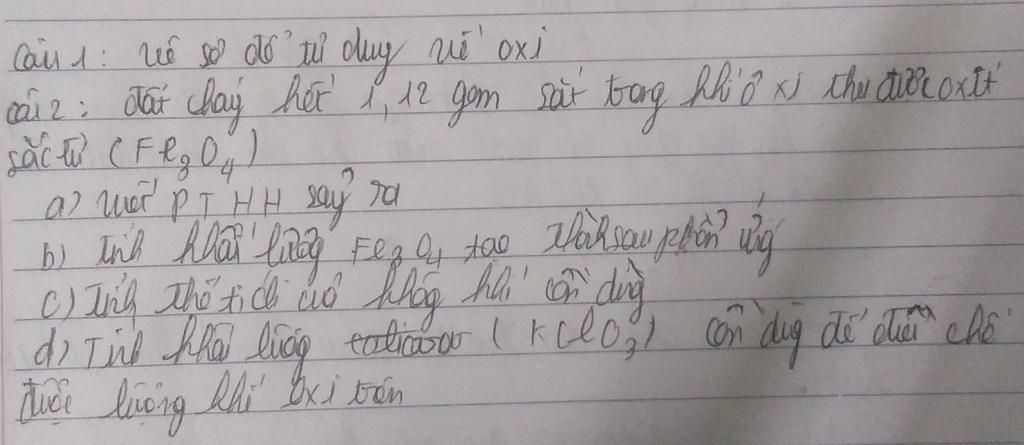 Câu 1: vẽ sơ đồ tư duy về oxi
câu 2: đốt cháy hết 1,12 gam sắt trong khí ô xi thu được oxit
sắt từ (Fe3O4)
a) viết PTHH sảy ra
b) Tính khối lượng Fe3O4 tạo thành sau phản ứng
c) Tính thể tích của không khí cần dùng
d) Tính khối lượng (KClO3) cần dùng để điều chế
được lượng khí oxi trên